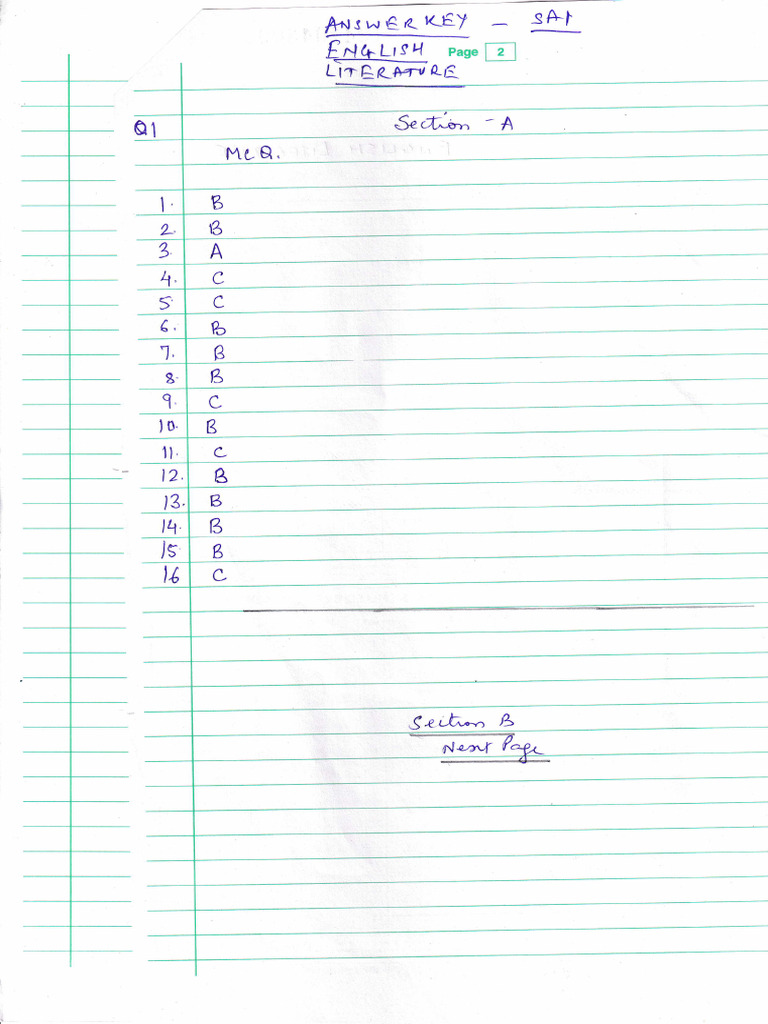 ANSWER KEY - SA1
ENGLISH Page 2
LITERATURE
Q1 Section - A
McQ.
1. B
2. B
3. A
4. C
5 C
6. B
7. B
8. B
9. C
10. B
11. C
12. B
13. B
14. B
15 B
16 C
Section B
Next Page